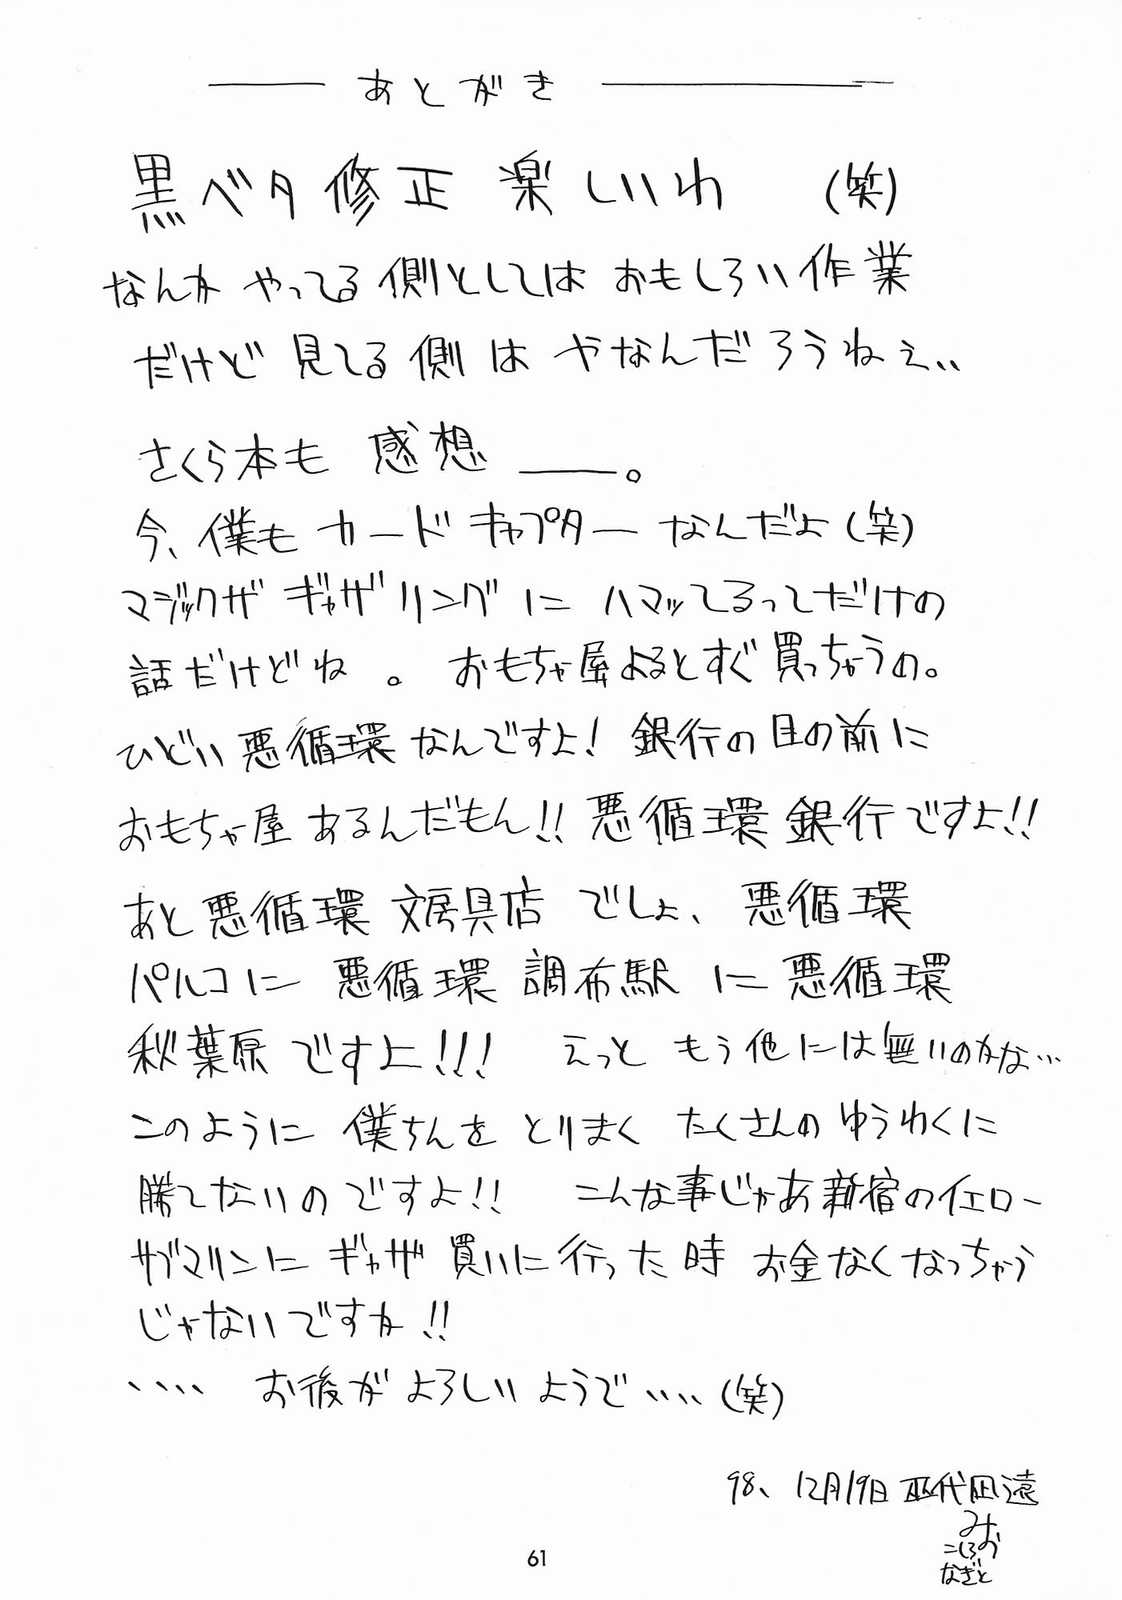 あとがき
黒ベタ修正 楽しいわ (笑)
なんか やってる側としては おもしろい作業
だけど 見てる側は やなんだろうねぇ、、
さくら本も 感想 ――。
今、僕も カードキャプター なんだよ(笑)
マジックザ ギャザリングに ハマッてるってだけの
話だけどね 。 おもちゃ屋よるとすぐ買っちゃうの。
ひどい悪循環なんですよ! 銀行の目の前に
おもちゃ屋 あるんだもん!! 悪循環銀行ですよ!!
あと悪循環 文房具店 でしょ、 悪循環
パルコに 悪循環 調布駅 に 悪循環
秋葉原 ですよ!!! えっと もう他には無いのかな…
このように 僕ちんを とりまく たくさんの ゆうわくに
勝てないの ですよ!! こんな事じゃあ新宿のイエロー
サブマリンに ギャザ 買いに行った時 お金なくなっちゃう
じゃないですか!!
、、、、 お後がよろしいようで、、、、(笑)
98、12月19日 巫代凪遠
みお
こしろ
なぎと
61